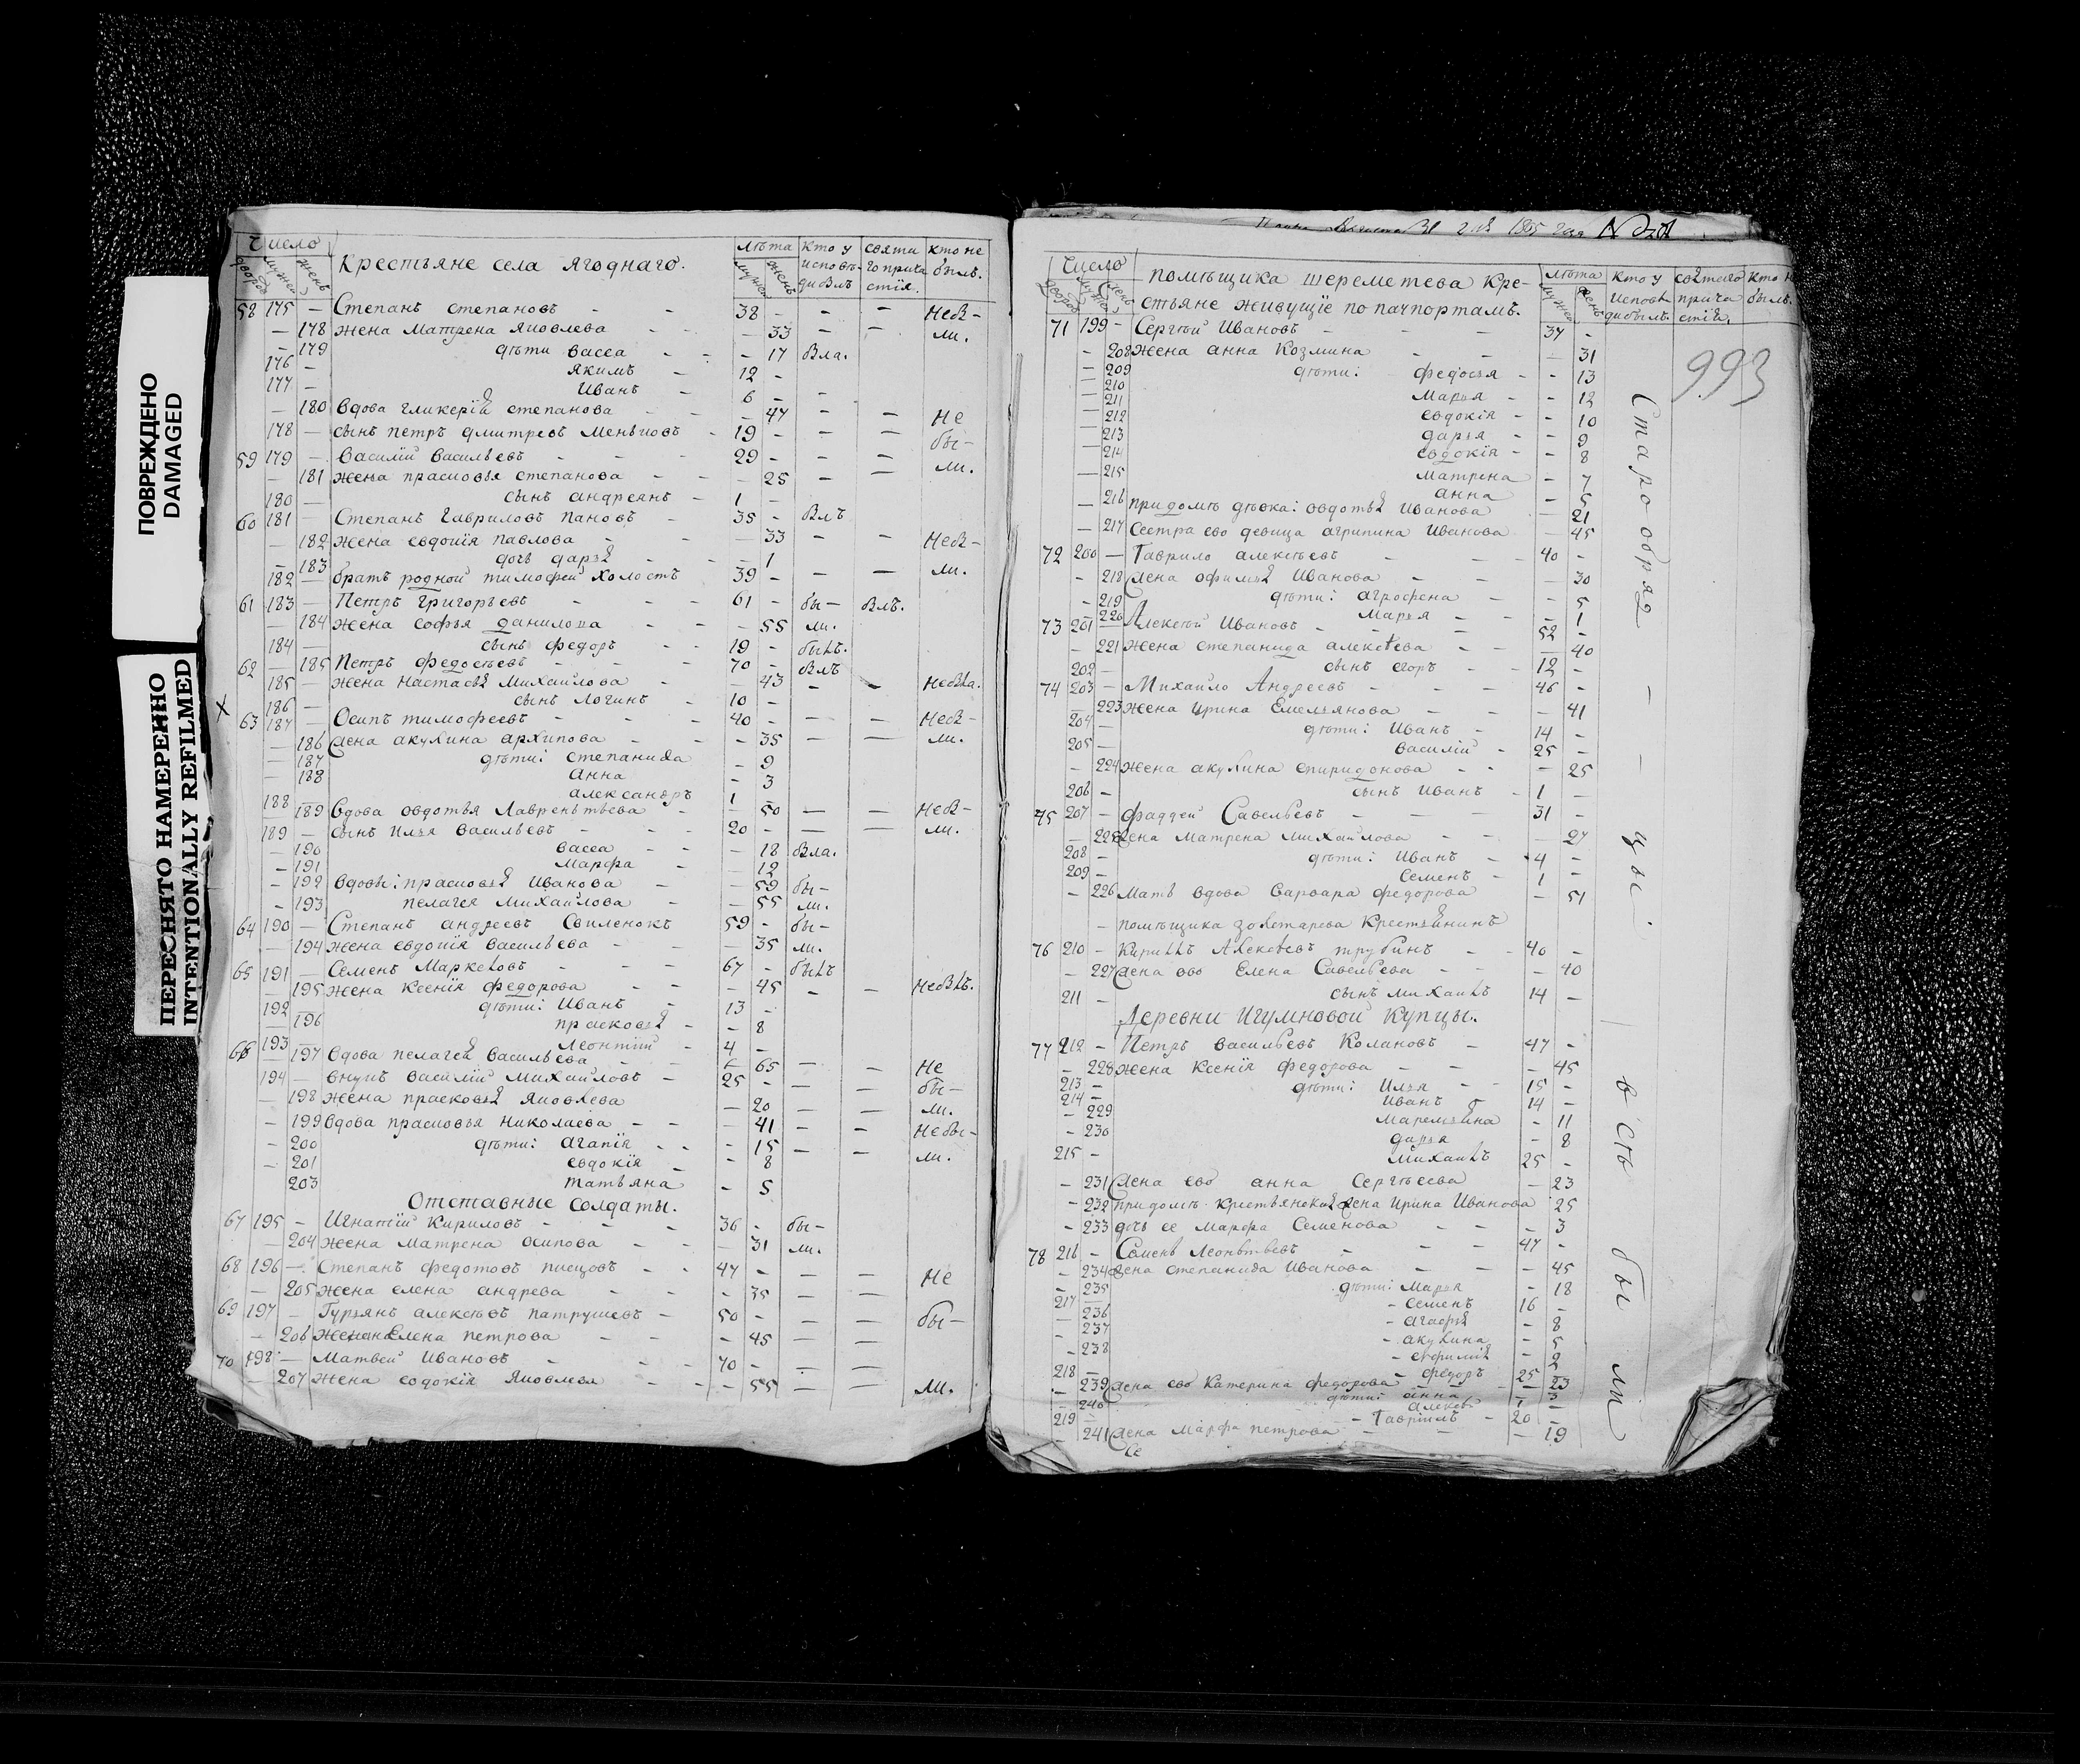 ПОВРЕЖДЕНО
DAMAGED
ПЕРЕСНЯТО НАМЕРЕННО
INTENTIONALLY REFILMED
Число
дворовъ мужей женъ
крестьяне села Ягоднаго.
лѣта
кто у исповѣди былъ
святаго причастія.
кто не былъ.
58 175 — Степанъ степановъ - 38 - - - Небы-
— 178 жена Матрена Яковлева - — 33 - - ли.
— 179 дѣти васса - — 17 была.
176 — якимъ - 12 -
177 — Иванъ 6 - -
— 180 вдова гликерія степанова - — 47 - - не
178 — сынъ петръ дмитревъ - 19 - - - бы-
59 179 — василій васильевъ - 29 - - - ли.
— 181 жена прасковья степанова - — 25 -
180 — сынъ андреянъ - 1 -
60 181 — Степанъ гавриловъ пановъ - 35 - былъ
— 182 жена евдокія павлова - — 33 - - Небы-
— 183 дочь дарья - — 1
182 — братъ родной тимофей холостъ 39 - - - ли.
61 183 — Петръ григорьевъ - 61 - бы- былъ.
— 184 жена софья данилова - — 55 ли.
184 — сынъ федоръ - 19 - былъ.
62 — 185 Петръ федосѣевъ - 70 - былъ
185 — жена настасья михайлова - — 43 - - небыла.
186 — сынъ логинъ - 10 -
х
63 187 — Осипъ тимофеевъ - 40 - - - Небы-
— 186 жена акулина архипова - — 35 - - ли.
— 187 дѣти: степанида - 9
— 188 анна - 3
188 — александръ 1 -
— 189 вдова овдотья Лаврентьева - — 50 - - Небы-
189 — сынъ илья васильевъ - 20 - - - ли.
— 190 васса - — 18 была.
— 191 марфа - — 12
— 192 вдовы: прасковья Иванова - — 59 бы-
— 193 пелагея михайлова - — 55 ли.
64 190 — Степанъ андреевъ Свиленокъ 59 - бы-
— 194 жена евдокія васильева - — 35 ли.
65 191 — Семенъ Маркеловъ - 67 - былъ
— 195 жена ксенія федорова - — 45 - - небылъ.
192 — дѣти: Иванъ - 13 -
— 196 прасковья - - 8
193 — леонтій - 4 -
66 — 197 вдова пелагея васильева - — 65 - - Не
194 — внукъ василій михайловъ - 25 - - - бы-
— 198 жена прасковья яковлева — 20 - - ли.
— 199 вдова прасковья николаева - — 41 - - Небы-
— 200 дѣти: агапія - - 15 - - ли.
— 201 евдокія - - 8
203 татьяна - 5
Отставные солдаты.
67 195 — Игнатій кириловъ - 36 - бы-
— 204 жена матрена осипова - — 31 ли.
68 196 — Степанъ федотовъ писцовъ - 47 - - - Не
— 205 жена елена андрева - - 35 - -
69 197 — Гурьянъ алексѣевъ патрушевъ - 50 - - - бы-
— 206 елена петрова - - 45 - -
70 198 — Матвей Ивановъ - 70 - - -
— 207 жена евдокія яковлева - - 55 - - ли.
993
Число
дворовъ мужей женъ
помѣщика шереметева кре-
стьяне живущіе по пачпортамъ.
лѣта
кто у исповѣди былъ.
святаго причастія.
кто не былъ.
71 199 - Сергѣй Ивановъ - 37 -
- 208 жена анна козмина - — 31
— 209 дѣти: федосья - - 13
— 210 Марья - - 12
— 211 евдокія - - 10
— 212 дарья - - 9
— 213 евдокія - - 8
— 214 матрена - 7
— 215 анна - 5
— 216 придомъ дѣвка: овдотья Иванова 21
— 217 Сестра ево девица агрипина Иванова 45
72 200 — Гаврило алексѣевъ - 40 -
- 218 жена офимья Иванова - — 30
- 219 дѣти: аграфена - - 5
- 220 Марья - - 1
73 201 — Алексѣй Ивановъ - 52 -
- 221 жена степанида алексѣева - - 40
202 — сынъ егоръ - 12 -
74 203 - Михайло Андреевъ - 46 -
— 223 жена ирина Емельянова - - 41
204 — дѣти: Иванъ - 14 -
205 — василій - 25 -
- 224 жена акулина спиридонова - - 25
206 - сынъ иванъ - 1 -
75 207 - фаддей Савельевъ - 31 -
— 225 жена матрена михайлова - — 27
208 - дѣти: Иванъ - 4 -
209 - семенъ - 1 -
- 226 мать вдова варвара федорова - 51
- помѣщика золотарева крестьянинъ
76 210 - Кирилъ Алексѣевъ трубинъ - 40 -
- 227 жена ево Елена Савельева - - 40
211 - сынъ михаилъ 14 -
Деревни Игумновой купцы.
77 212 - Петръ васильевъ - 47 -
- 228 жена Ксенія федорова - - 45
213 - дѣти: илья - 15 -
214 - иванъ - 14 -
- 229 маремьяна - 11
- 230 дарья - 8
215 - михаилъ 25 -
- 231 жена ево анна Сергѣева - 23
- 232 придомъ крестьянская жена ирина Иванова 25
- 233 дочь ее марфа Семенова - - 3
78 216 - Семенъ леонтьевъ - 47 -
- 234 жена степанида иванова - - 45
- 235 дѣти: марья - 18
217 — - семенъ 16 -
- 236 - агафья - 8
- 237 - акулина - 5
- 238 - евфимія - 2
218 — - федоръ 25 -
- 239 жена ево катерина федорова - — 23
- 240 дѣти: анна - 3
219 — - Гавріилъ - 20 -
- 241 жена марфа петрова - — 19
Се
Старообряд — — цы. в сѣ бы ли